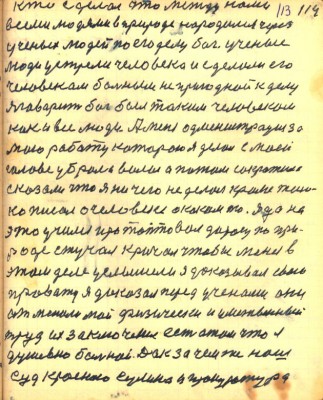 кто сделал это между нами
113 114
всеми людями в природе народился через
ученых людей по его делу бог. ученые
люди человека и сделали его
человеком больным не пригодной к делу
я говорить бог был таким человеком
как и все люди. А меня администрация за
мою работу которою я делал с моей
головы убрала волоса а потом
сказали что я ни чего не делал кроме только
ко писал о человеке о каком то. Я да на
это учился протоптовал дорогу по при
роде стучал кричал чтобы меня в
этом деле услышали я доказывал свою
правоту я доказал перед учеными они
мой физически и умственный
труд их заключение есть о том что я
душевно больной. Так за чем же наш
суд Красного Сулина и прокуратура